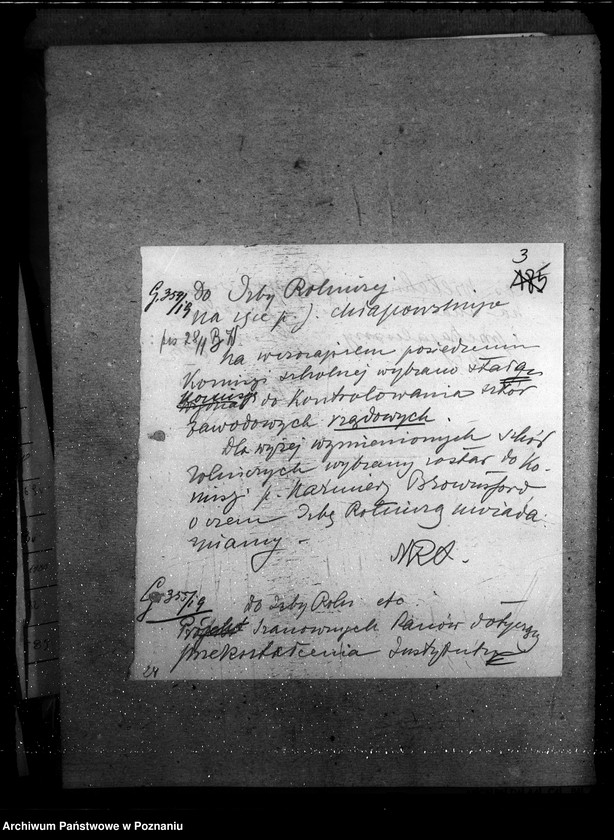 3
485
G. 359/19 Do Izby Rolniczej
na ręce p. J. Chłapowskiego
28/11
na wczorajszem posiedzeniu
Komisyi szkolnej wybrano stałą
do Kontrolowania szkół
zawodowych rządowych.
Dla wyżej wymienionych szkół
rolniczych wybrany został do Ko-
misyi p. Kaźmierz Brownsford
o czem Izbę Rolniczą uwiada-
miamy -
NRL.
G. 355/19 do Izby Roln etc
Projekt Szanownych Panów dotyczący
przekształcenia Instytutu
24
Archiwum Państwowe w Poznaniu